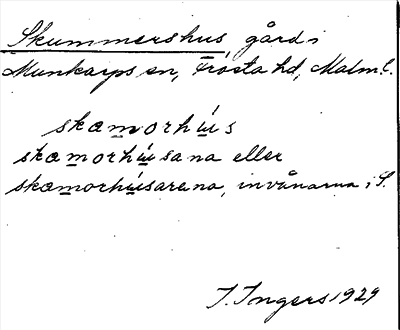 Skummershus, gård i
Munkarps sn, Frosta hd, Malm. l.
skæmorhús
skæmorhúsana eller
skæmorhúsarena, invånarna i S.
I. Ingers 1929